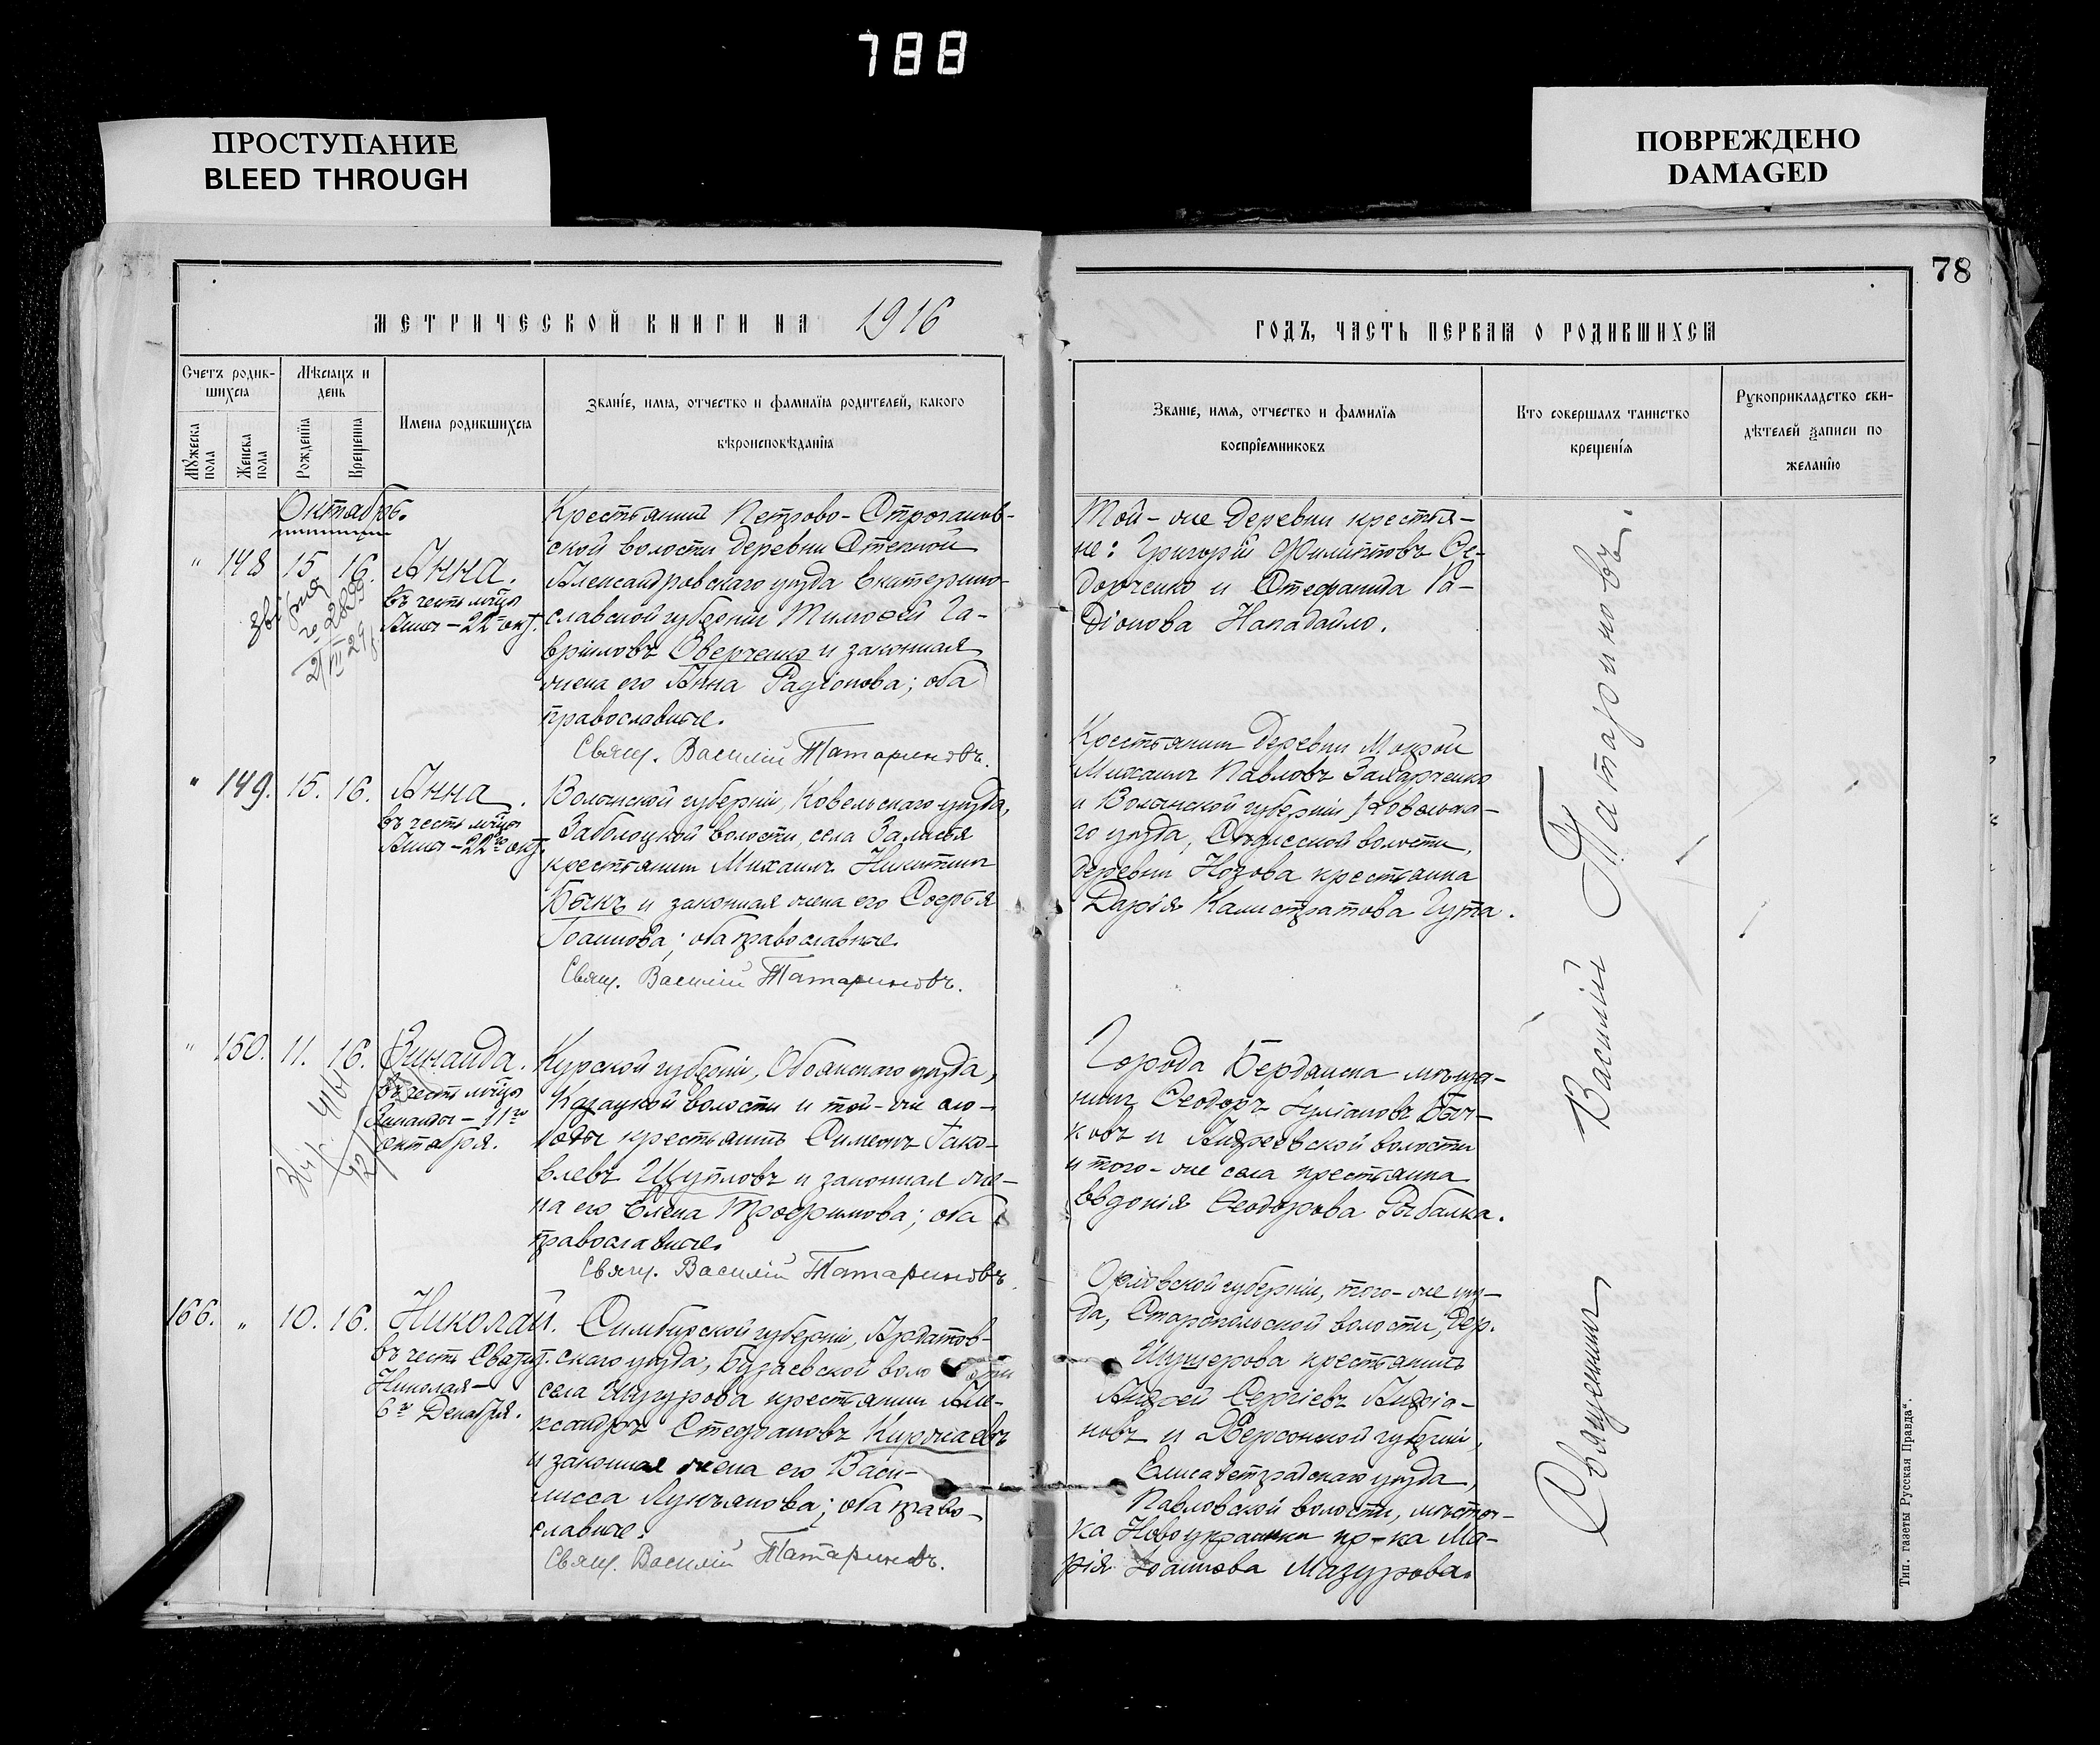 788
ПРОСТУПАНИЕ
BLEED THROUGH
ПОВРЕЖДЕНО
DAMAGED
78
МЕТРИЧЕСКОЙ КНИГИ НА 1916
ГОДЪ, ЧАСТЬ ПЕРВАЯ О РОДИВШИХСЯ
Счетъ родив-
шихся
Мужеска пола
Женска пола
Мѣсяцъ и
день
Рожденія
Крещенія
Имена родившихся
Званіе, имя, отчество и фамилія родителей, какого
вѣроисповѣданія
Званіе, имя, отчество и фамилія
воспріемниковъ
Кто совершалъ таинство
крещенія
Рукоприкладство сви-
дѣтелей записи по
желанію
Октябрь.
" 148 15 16. Анна.
въ честь мчцы
Анны – 22го окт.
Крестьянинъ Петрово-Строганов-
ской волости деревни Степной
Александровскаго уѣзда Екатерино-
славской губерніи Тимоѳей Га-
вріиловъ Оверченко и законная
жена его Анна Радіонова; оба
православные.
Свящ. Василій Татариновъ.
Той-же деревни крестья-
не: Григорій Филипповъ Се-
дорченко и Стефанида Ра-
діонова Нападайло.
" 149. 15. 16. Анна.
въ честь мчцы
Анны – 22го окт.
Волынской губерніи, Ковельскаго уѣзда,
Заболоцкой волости, села Залисья
крестьянинъ Михаилъ Никитинъ
Быкъ и законная жена его Софья
Іоаннова; оба православные.
Свящ. Василій Татариновъ.
Крестьянинъ деревни Мокрой
Михаилъ Павловъ Захарченко
и Волынской губерніи, Ковельска-
го уѣзда, волости,
деревни крестьянка
Дарія Калистратова Гута.
" 150. 11. 16. Зинаида.
въ честь мчцы
Зинаиды – 11го
октября.
Курской губерніи, Обоянскаго уѣзда,
Казацкой волости и той-же сло-
боды крестьянинъ Симеонъ Іако-
влевъ Щупловъ и законная же-
на его Елена Трофимова; оба
православные.
Свящ. Василій Татариновъ
Города Бердянска мѣща-
нинъ Ѳеодоръ Іуліановъ Быч-
ковъ и Андреевской волости
и того-же села крестьянка
Евдокія Ѳеодорова Рыбалка.
166. " 10. 16. Николай.
въ честь Святит.
Николая –
6го Декабря.
Симбирской губерніи, Ардатов-
скаго уѣзда, Бузаевской волости
села крестьянинъ Але-
ксандръ Стефановъ Киржаевъ
и законная жена его Васи-
лисса Лукьянова; оба право-
славные.
Свящ. Василій Татариновъ.
Орловской губерніи, того-же уѣз-
да, волости, дер.
крестьянинъ
Андрей Сергіевъ Андріа-
новъ и Херсонской губерніи,
Елисаветградскаго уѣзда,
Павловской волости, мѣстеч-
ка Новоукраинки кр-ка Ма-
рія Іоаннова Мазурова.
Священникъ Василій Татариновъ.
Тип. газеты "Русская Правда".